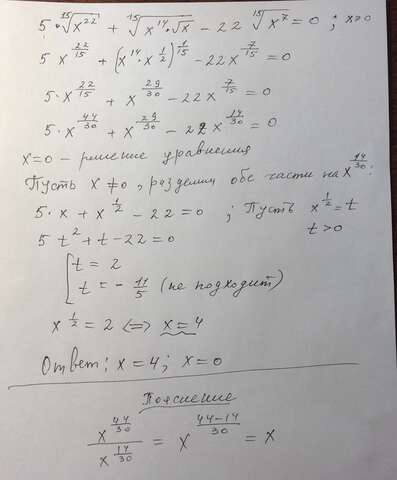 5·¹⁵√x²² + ¹⁵√(x¹⁴·√x) − 22 ¹⁵√x⁷ = 0 ; x≥0
5 x^(22/15) + (x¹⁴·x^(1/2))^(1/15) − 22x^(7/15) = 0
5·x^(22/15) + x^(29/30) − 22x^(7/15) = 0
5·x^(44/30) + x^(29/30) − 22x^(14/30) = 0
x=0 – решение уравнения
Пусть x≠0, разделим обе части на x^(14/30):
5·x + x^(1/2) − 22 = 0 ; Пусть x^(1/2) = t
t>0
5t² + t − 22 = 0
[ t = 2
t = − 11/5 (не подходит)
x^(1/2) = 2 <=> x=4
Ответ: x=4; x=0
Пояснение
x^(44/30) / x^(14/30) = x^((44−14)/30) = x